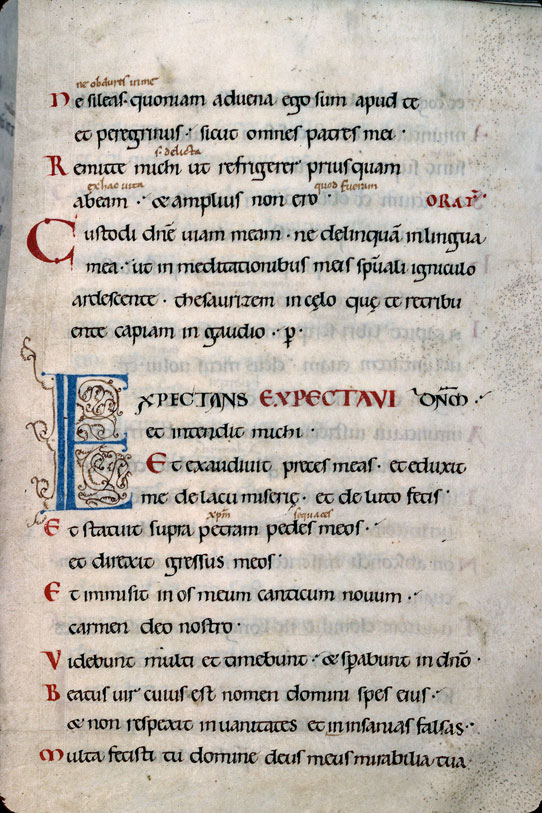 ne obdures in me
Ne sileas· quoniam aduena ego sum apud te
et peregrinus· sicut omnes patres mei·
s· delicta
Remitte michi ut refrigerer priusquam
ex hac uita quod fueram
abeam·· & amplius non ero ORAT̄
Custodi dn̄e uiam meam· ne delinquā in lingua
mea·· ut in meditationibus meis sp̄uali igniculo
ardescente· thesaurizem in cęlo quę te retribu
ente capiam in gaudio· p̄·
EXPECTANS EXPECTAVI DŃM·
et intendit michi·
Et exaudiuit preces meas· et eduxit
me de lacu miserię· et de luto fecis·
xp̄m sequaces
Et statuit supra petram pedes meos··
et direxit gressus meos·
Et inmisit in os meum canticum nouum··
carmen deo nostro·
Videbunt multi et timebunt·· & sp̄abunt in dn̄o·
Beatus uir cuius est nomen domini spes eius··
& non respexit in uanitates et in insanias falsas·
Multa fecisti tu domine deus meus mirabilia tua